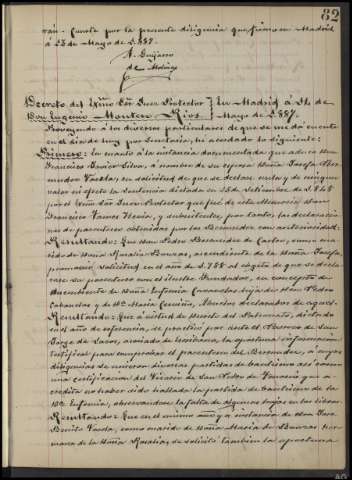 82
rán. Consta por la presente diligencia que firmo en Madrid
á 23 de Mayo de 1.887.
A. Guijarro
de Molina
Decreto del Exmo Sor Juez Protector } En Madrid á 24 de
Don Eugenio Montero Rios. } Mayo de 1.887.
Proveyendo á los diversos particulares de que se me dá cuenta
en el dia de hoy por Secretaría, he acordado lo siguiente:
Primero: En cuanto á la instancia documentada que aduce Don
Francisco Javier Silva, á nombre de su esposa Doña Josefa Ber-
mudez, en solicitud de que se declare nula y de ningun
valor ni efecto la Sentencia dictada en 25 de Setiembre de 1.848
por el Exmo Sor Juez Protector que fué de esta Memoria, Don
Francisco Tames Hevia, y subsistentes, por tanto, las declaracio-
nes de parentesco obtenidas por los Bermudez con anterioridad:
Resultando: Que Don Pedro Bermudez de Castro, como ma-
rido de Doña Rosalia Bouzas, ascendiente de la Doña Josefa,
promovió solicitud en el año de 1.788 al objeto de que se decla-
rase su parentesco con el ilustre Fundador, en concepto de
descendiente de Doña Eufemia Cabanelas hija de Don Pedro
Cabanelas y de Dª. Maria Cerviño, Abuelos declarados de aquel.
Resultando: Que á virtud de Decreto del Patronato, dictado
en el año de referencia, se practicó por ante el Párroco de San
Jorge de Sacos, asociado de Escribano, la oportuna informacion
testifical para comprobar el parentesco del Bermudez, á cuyas
diligencias se unieron diversas partidas de bautismo así como
una certificacion del Vicario de San Pedro de Tenorio que a-
credita no haber sido hallada la partida de bautismo de la
Dª. Eufemia, observándose la falta de algunas hojas en los libros.
Resultando: Que en el mismo año y á instancia de Don José
Benito Varela, como marido de Doña Maria de Bouzas her-
mana de la Doña Rosalia, se solicitó tambien la oportuna